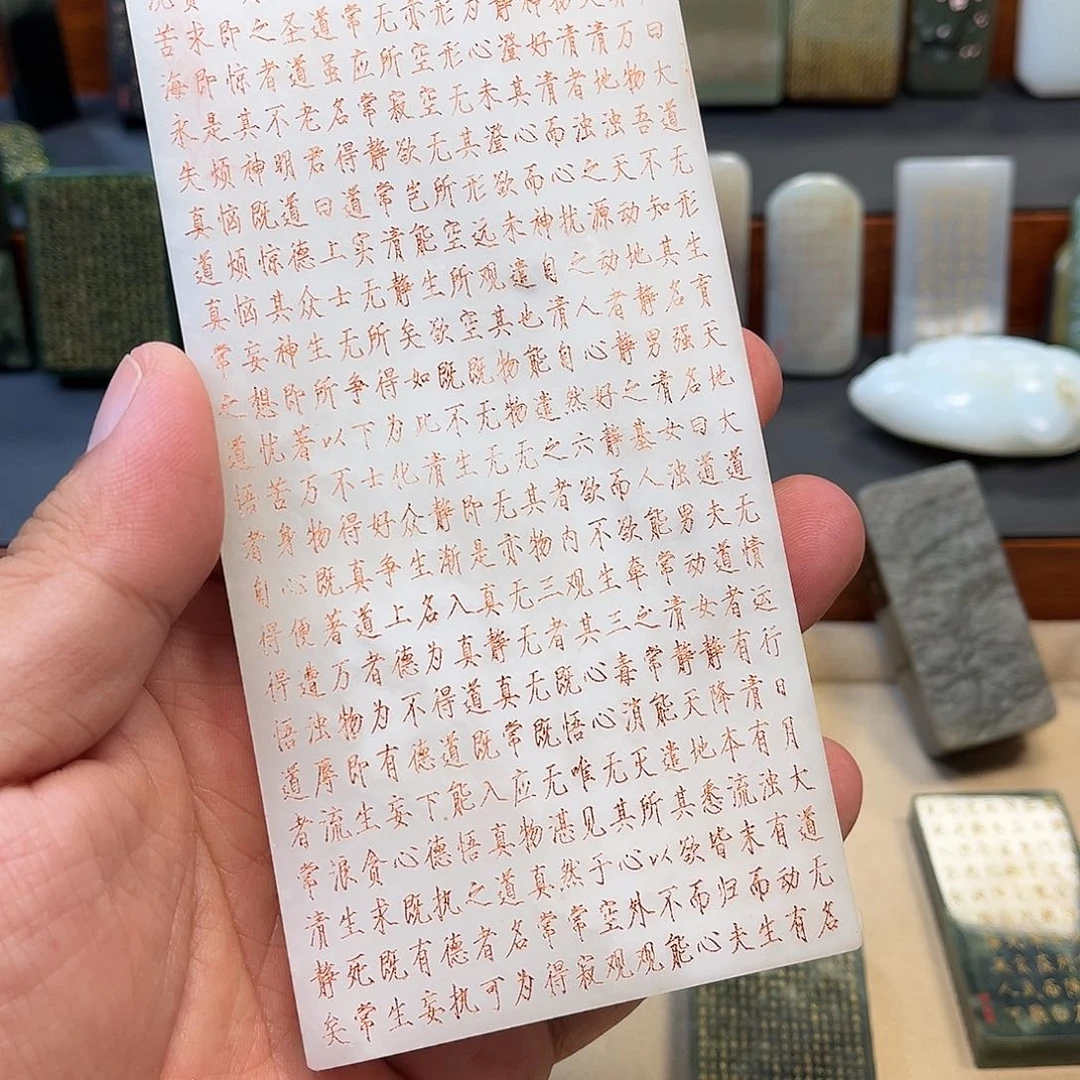 大道无形生育天地大道无情运行日月大道无名
万物吾不知其名强名曰道夫道者有清有浊有动有
天清地浊天动地静男清女浊男动女静降本流末而生
物清者浊之源动者静之基人能常清静天地悉皆归夫
神好清而心扰之人心好静而欲牵之常能遣其欲而心
静澄其心而神自清自然六欲不生三毒消灭所以不能
为心未澄欲未遣也能遣之者内观其心心无其心外观
形形无其形远观其物物无其物三者既悟唯见于空观
亦空空无所空所空既无无无亦无无无既无湛然常寂
无所寂欲岂能生欲既不生即是真静真常应物真常得
常应常静常清静矣如此清静渐入真道既入真道名为
道虽名得道实无所得为化众生名为得道能悟之者可
圣道老君曰上士无争下士好争上德不德下德执德执
之者不明道德众生所以不得真道者为有妄心既有妄
即惊其神既惊其神即著万物既著万物即生贪求既生
求即是烦恼烦恼妄想忧苦身心便遭浊辱流浪生死常
苦海永失真道真常之道悟者自得得悟道者常清静矣